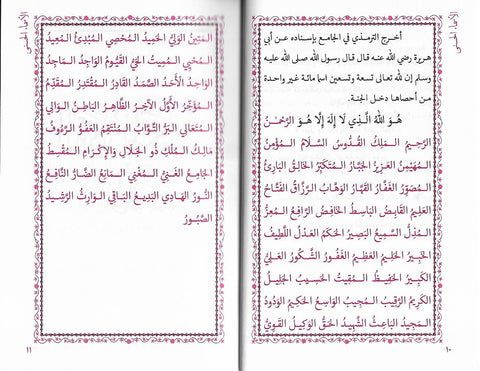 الأسماء الحسنى
أخرج الترمذي في الجامع بإسناده عن أبي
هريرة رضي الله عنه قال قال رسول الله صلى الله عليه
وسلم إن لله تعالى تسعة وتسعين اسما مائة غير واحدة
من أحصاها دخل الجنة.
هُوَ اللهُ الَّذِي لَا إِلٰهَ إِلَّا هُوَ الرَّحْمٰنُ
الرَّحِيم الـمَلِكُ القُدُّوس السَّلَامُ الـمُؤْمِنُ
الـمُهَيْمِنُ العَزِيزُ الجَبَّارُ الـمُتَكَبِّرُ الخَالِقُ البَارِئُ
الـمُصَوِّرُ الغَفَّارُ القَهَّارُ الوَهَّابُ الرَّزَّاقُ الفَتَّاحُ
العَلِيمُ القَابِضُ البَاسِطُ الخَافِضُ الرَّافِعُ الـمُعِزُّ
الـمُذِلُّ السَّمِيعُ البَصِيرُ الحَكَمُ العَدْلُ اللَّطِيفُ
الخَبِيرُ الحَلِيمُ العَظِيمُ الغَفُورُ الشَّكُورُ العَلِيُّ
الكَبِيرُ الحَفِيظُ الـمُقِيتُ الحَسِيبُ الجَلِيلُ
الكَرِيمُ الرَّقِيبُ الـمُجِيبُ الوَاسِعُ الحَكِيمُ الوَدُودُ
الـمَجِيدُ البَاعِثُ الشَّهِيدُ الحَقُّ الوَكِيلُ القَوِيُّ
١٠
الأسماء الحسنى
الـمَتِينُ الوَلِيُّ الحَمِيدُ الـمُحْصِي الـمُبْدِئُ الـمُعِيدُ
الـمُحْيِي الـمُمِيتُ الحَيُّ القَيُّومُ الوَاجِدُ الـمَاجِدُ
الوَاحِدُ الأَحَدُ الصَّمَدُ القَادِرُ الـمُقْتَدِرُ الـمُقَدِّمُ
الـمُؤَخِّرُ الأَوَّلُ الآخِرُ الظَّاهِرُ البَاطِنُ الوَالِي
الـمُتَعَالِي البَرُّ التَّوَّابُ الـمُنْتَقِمُ العَفُوُّ الرَّءُوفُ
مَالِكُ الـمُلْكِ ذُو الجَلَالِ وَالإِكْرَامِ الـمُقْسِطُ
الجَامِعُ الغَنِيُّ الـمُغْنِي الـمَانِعُ الضَّارُّ النَّافِعُ
النُّورُ الهَادِي البَدِيعُ البَاقِي الوَارِثُ الرَّشِيدُ
الصَّبُورُ
١١